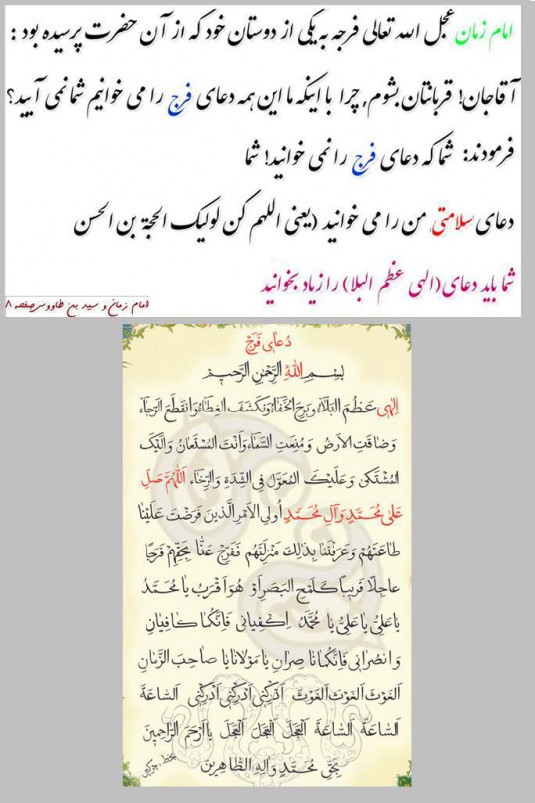 امام زمان عجل الله تعالی فرجه به یکی از دوستان خود که از آن حضرت پرسیده بود :
آقاجان! قربانتان بشوم، چرا با اینکه ما این همه دعای فرج را می خوانیم شما نمی آیید؟
فرمودند: شما که دعای فرج را نمی خوانید! شما
دعای سلامتی من را می خوانید (یعنی اللهم کن لولیک الحجة بن الحسن
شما باید دعای(الهی عظم البلا) را زیاد بخوانید
امام زمان و سید بن طاووس صفحه ۸
دُعای فَرَج
بِسْمِ اللهِ الرَّحْمٰنِ الرَّحیمِ
اِلٰهی عَظُمَ الْبَلاٰءُ وَبَرِحَ الْخَفاٰءُ وَانْكَشَفَ الْغِطاٰءُ وَانْقَطَعَ الرَّجاٰءُ
وَضاٰقَتِ الْاَرْضُ وَمُنِعَتِ السَّماٰءُ وَاَنْتَ الْمُسْتَعانُ وَاِلَیْكَ
الْمُشْتَكیٰ وَعَلَیْكَ الْمُعَوَّلُ فِی الشِّدَّةِ وَالرَّخاٰءِ اَللّٰهُمَّ صَلِّ
عَلیٰ مُحَمَّدٍ وَآلِ مُحَمَّدٍ اُولِی الْاَمْرِ الَّذینَ فَرَضْتَ عَلَیْناٰ
طاٰعَتَهُمْ وَعَرَّفْتَناٰ بِذٰلِكَ مَنْزِلَتَهُمْ فَفَرِّجْ عَنّاٰ بِحَقِّهِمْ فَرَجاً
عاٰجِلاً قَریباً كَلَمْحِ الْبَصَرِ اَوْ هُوَ اَقْرَبُ یاٰ مُحَمَّدُ
یاٰ عَلِیُّ یاٰ عَلِیُّ یاٰ مُحَمَّدُ اِكْفِیاٰنی فَاِنَّكُماٰ كاٰفِیاٰنِ
وَانْصُراٰنی فَاِنَّكُماٰ ناٰصِراٰنِ یاٰ مَوْلاٰناٰ یاٰ صاٰحِبَ الزَّماٰنِ
اَلْغَوْثَ اَلْغَوْثَ اَلْغَوْثَ اَدْرِكْنی اَدْرِكْنی اَدْرِكْنی اَلسّاٰعَةَ
اَلسّاٰعَةَ اَلسّاٰعَةَ اَلْعَجَلَ اَلْعَجَلَ اَلْعَجَلَ یاٰ اَرْحَمَ الرّاٰحِمینَ
بِحَقِّ مُحَمَّدٍ وَآلِهِ الطّاٰهِرینَ